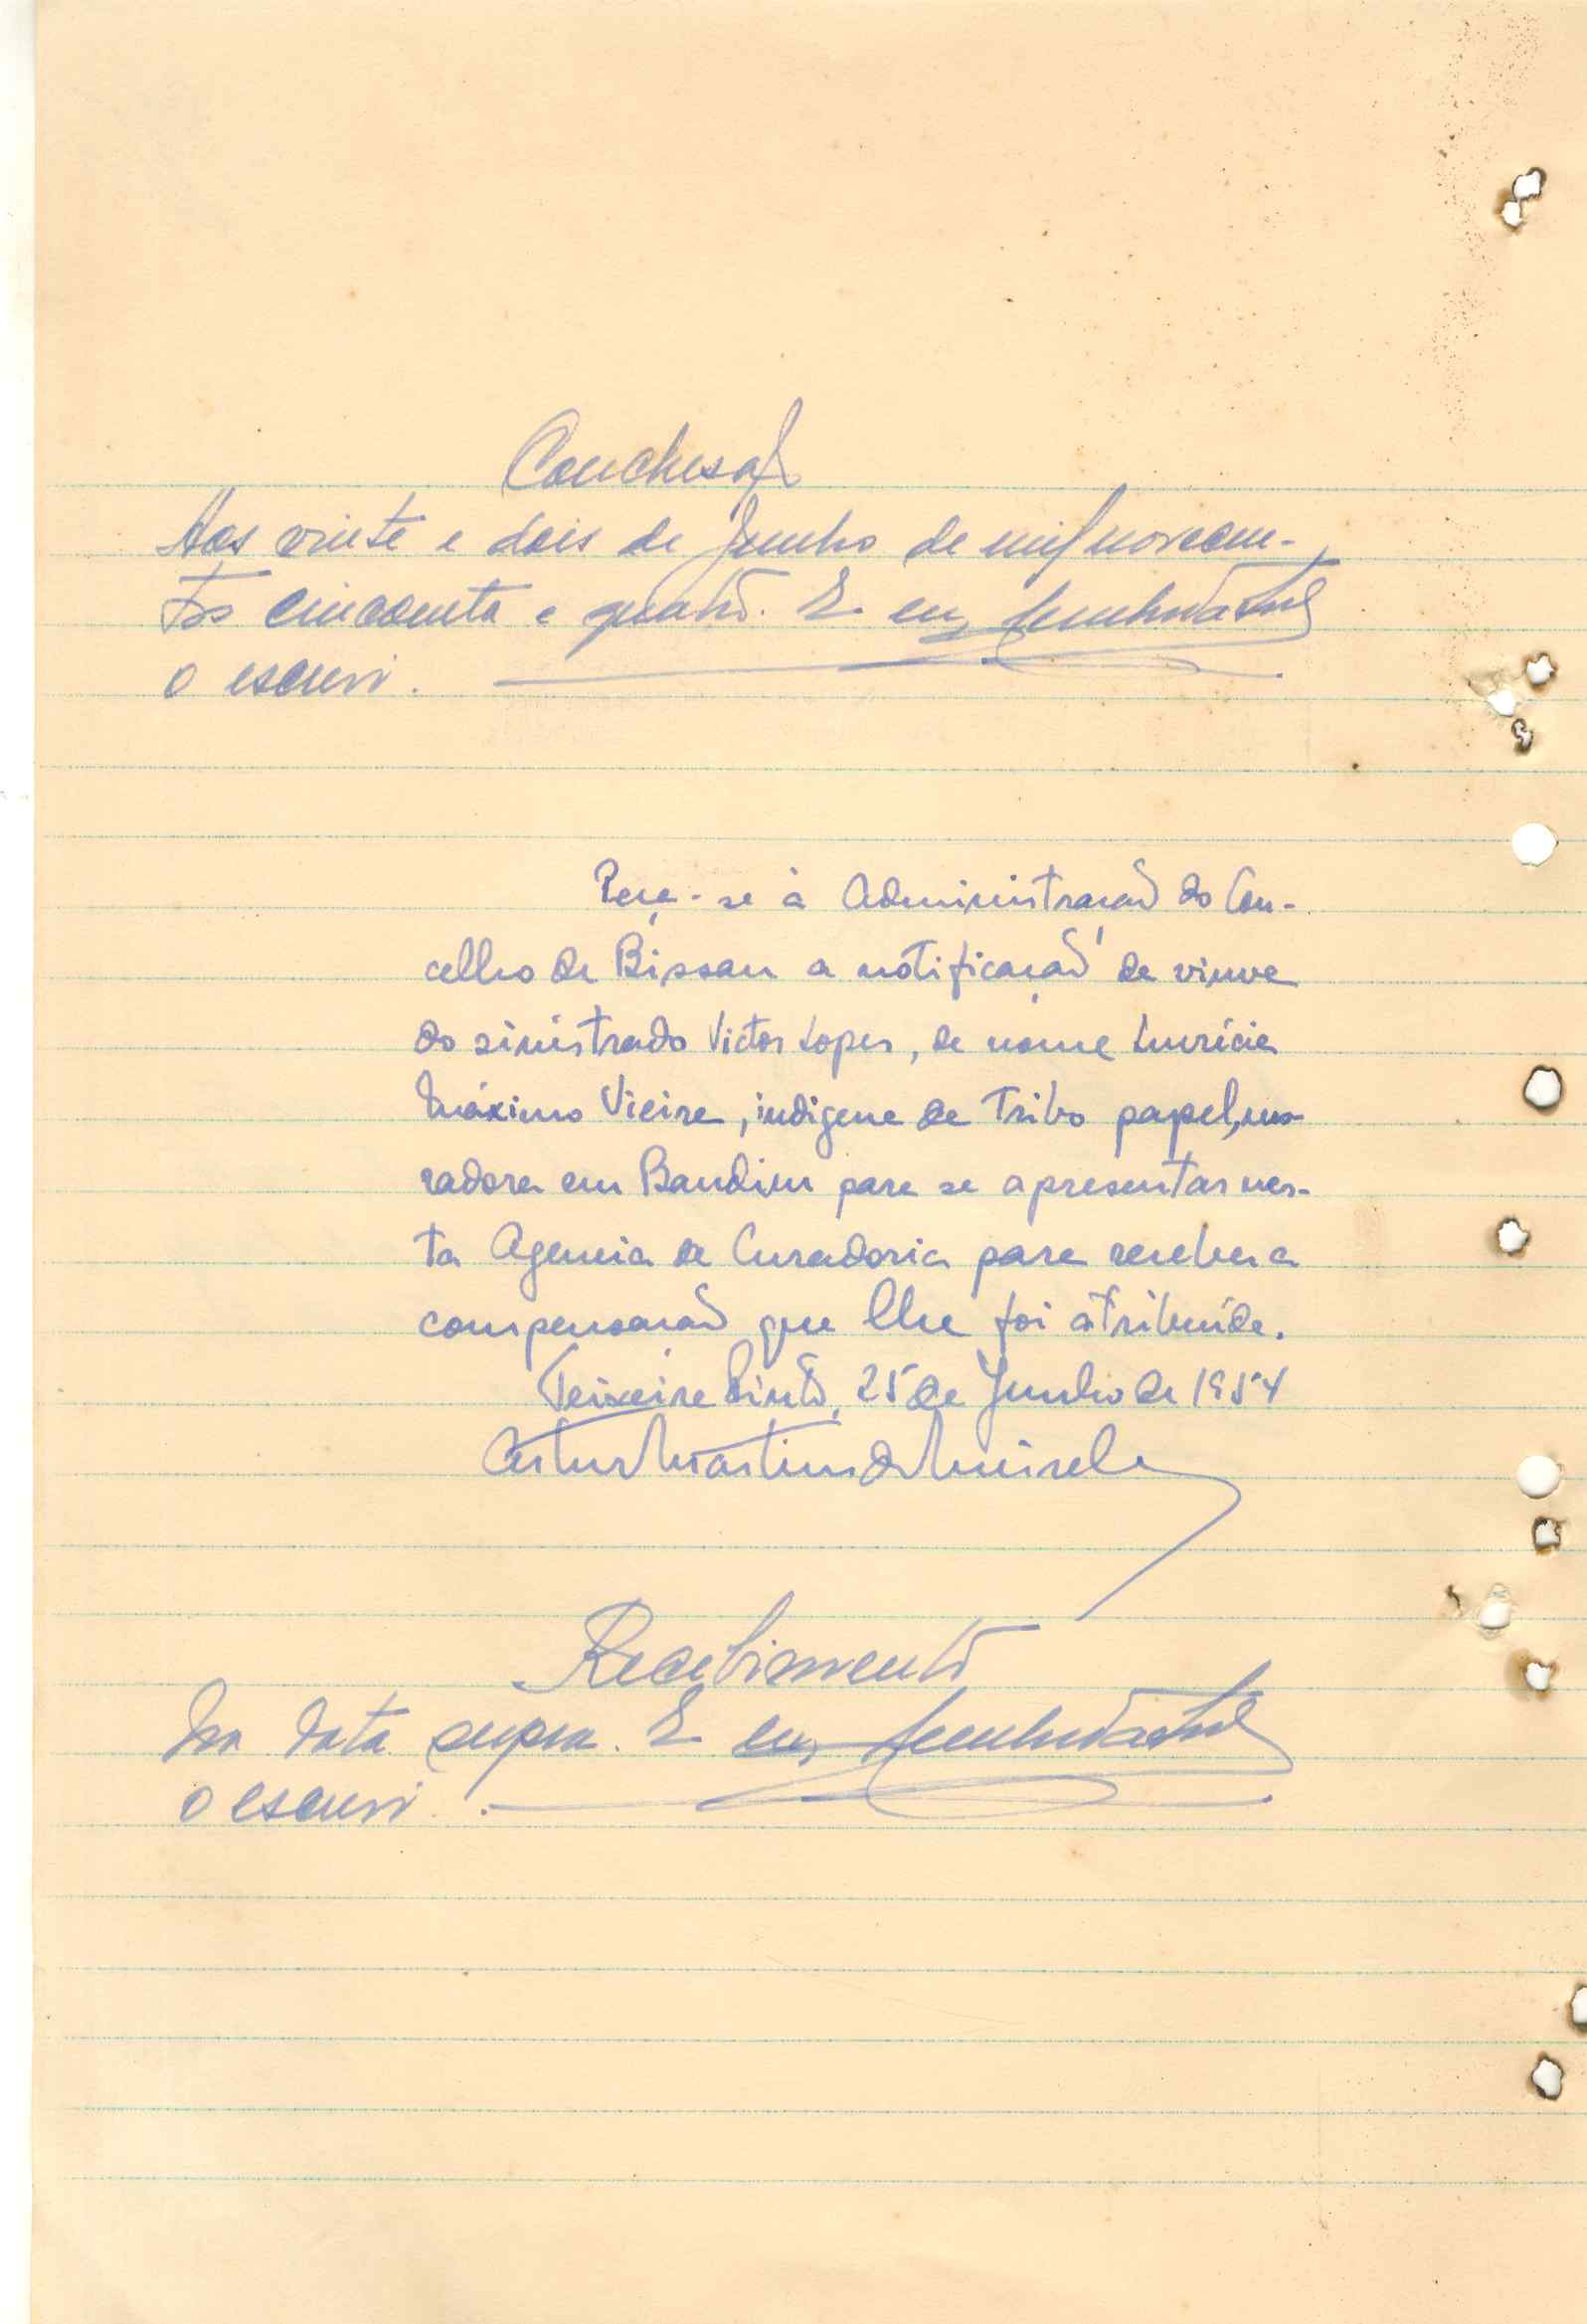 Conclusão
Aos vinte e dois de Junho de mil novecen-
tos cincoenta e quatro. E eu,
o escrevi.
Peça-se à Administração do Con-
celho de Bissau a notificação da viuva
do sinistrado Victor Lopes, de nome
Máximo Vieira, indigena da Tribo papel, mo-
radora em Bandim para se apresentar nes-
ta Agencia da Curadoria para receber a
compensação que lhe foi atribuída.
Teixeira Pinto, 25 de Junho de 1954
Artur Martins de Meireles
Recebimento
Na data supra. E eu,
o escrevi.